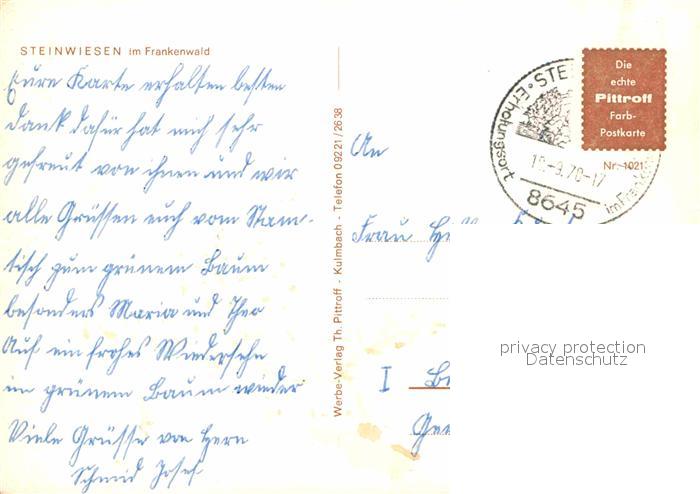 STEINWIESEN im Frankenwald
Eure Karte erhalten besten
Dank dafür hat mich sehr
gefreut von ihnen und wir
alle Grüssen euch vom Stam-
tisch zum grünem Baum
besonders Maria und Theo
Auf ein frohes Wiedersehn
im grünem Baum wieder
Viele Grüsse von Hern
Schmid Josef
Werbe-Verlag Th. Pittroff - Kulmbach - Telefon 09221/2638
An
Frau
I
Die
echte
Pittroff
Farb-
Postkarte
Nr. 1021
STE
Erholungsort
-9.70-17
8645
im Frank
privacy protection
Datenschutz